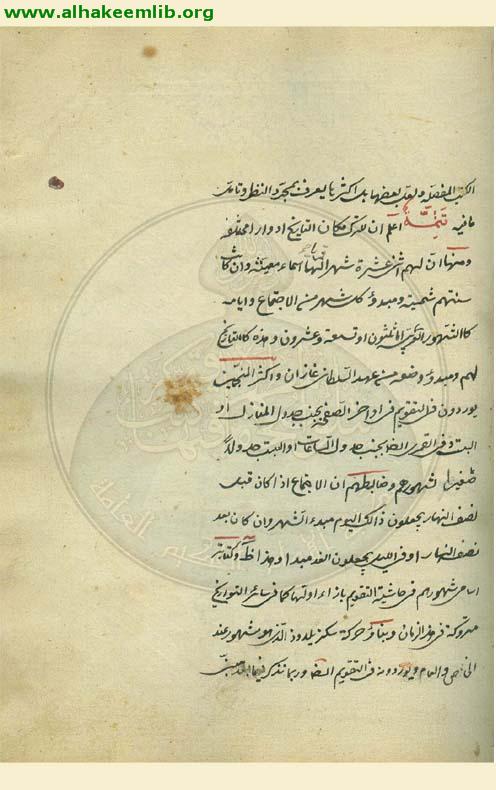 www.alhakeemlib.org
الكتب المفصلة ولعل بعضها بل اكثرها يعرف بمجرد النظر وتأمل
ما فيه تتمة اعلم ان للترك مكان التاريخ ادوارا مختلفة
ومنها ان لهم اثنى عشرة شهرا لها اسماء معينة وان كانت
سنتهم شمسية ومبدؤ كل شهر من الاجتماع وايامه
كالشهور القمرى اما ثلثون او تسعة وعشرون وهذه كالتاريخ
لهم ومبدؤ وضعه من عهد السلطان غازان واكثر المنجمين
يوردون فى التقويم فى اواخر الصفحة بجنب جدول المنازل او
البت فى بجنب جدول او البت جدولا
صغيرا لشهورهم وضابطهم ان الاجتماع اذا كان قبل
نصف النهار يجعلون ذالك اليوم مبدء الشهر وان كان بعد
نصف النهار او فى الليل يجعلون الغد مبدا وهذا ظ وكتابة
اسامى شهورهم فى حاشية التقويم بازاء اوله كما فى سائر التواريخ
متروكة فى هذ الزمان وبناؤ حركة سكز يلدوز الذى هو مشهور عند
الخاص والعام ويوردونه فى التقويم ايضا وربما نذكر فيما بعد